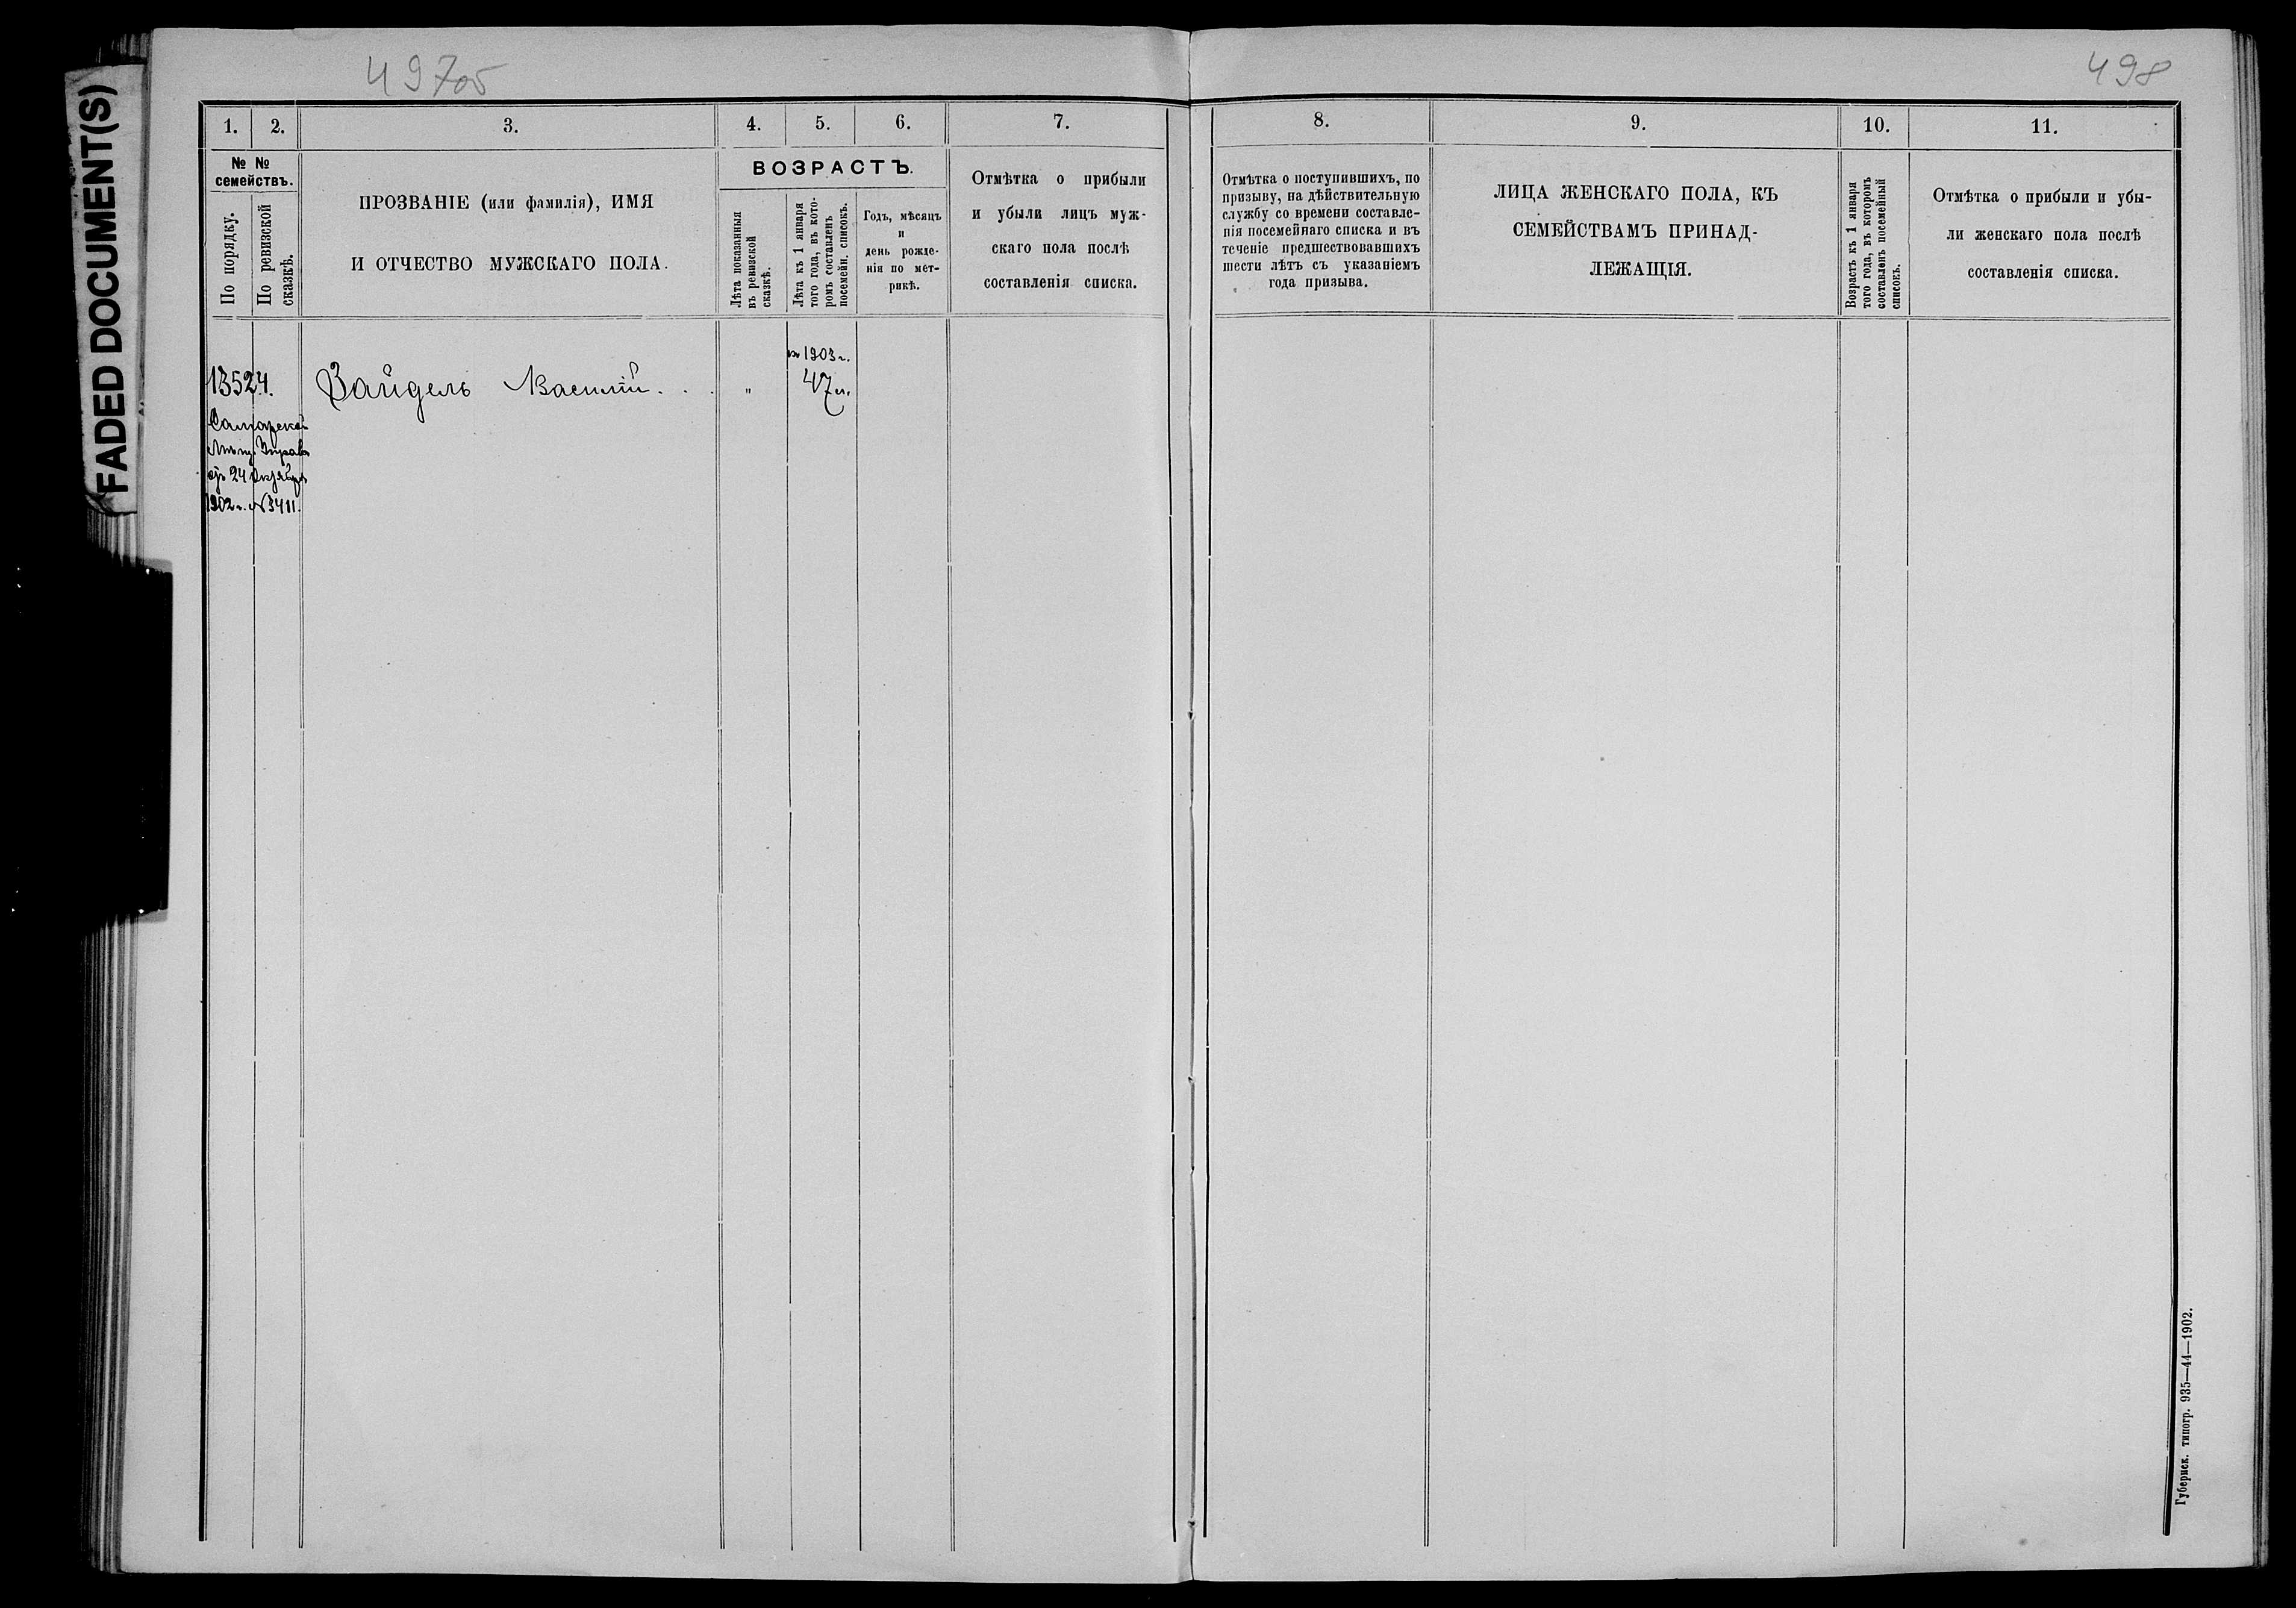 FADED DOCUMENT(S)
497об
498
1. 2. 3. 4. 5. 6. 7.
№ № семействъ.
По порядку.
По ревизской сказкѣ.
ПРОЗВАНІЕ (или фамилія), ИМЯ
И ОТЧЕСТВО МУЖСКАГО ПОЛА.
ВОЗРАСТЪ.
Лѣта показанныя
въ ревизской
сказкѣ.
Лѣта къ 1 января
того года, въ кото-
ромъ составленъ
посемейн. списокъ.
Годъ, мѣсяцъ
и
день рожде-
нія по мет-
рикѣ.
Отмѣтка о прибыли
и убыли лицъ муж-
скаго пола послѣ
составленія списка.
на 1903 г.
13524. Зайдель Василій. . . " 47 л.
Самарской
Мѣщ. Управы
отъ 24 Октября
1902 г. № 3411.
8. 9. 10. 11.
Отмѣтка о поступившихъ, по
призыву, на дѣйствительную
службу со времени составле-
нія посемейнаго списка и въ
теченіе предшествовавшихъ
шести лѣтъ съ указаніемъ
года призыва.
ЛИЦА ЖЕНСКАГО ПОЛА, КЪ
СЕМЕЙСТВАМЪ ПРИНАД-
ЛЕЖАЩІЯ.
Возрастъ къ 1 января
того года, въ которомъ
составленъ посемейный
списокъ.
Отмѣтка о прибыли и убы-
ли женскаго пола послѣ
составленія списка.
Губернск. типогр. 935—44—1902.